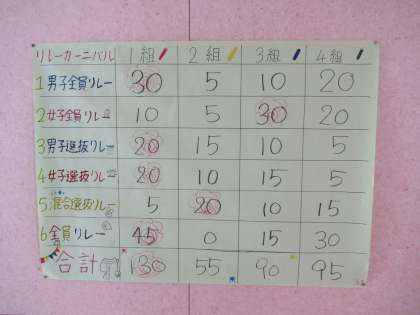 リレーカーニバル 1組 2組 3組 4組
1 男子全員リレー 30 5 10 20
2 女子全員リレー 10 5 30 20
3 男子選抜リレー 20 15 10 5
4 女子選抜リレー 20 10 15 5
5 混合選抜リレー 5 20 10 15
6 全員リレー 45 0 15 30
合計 130 55 90 95